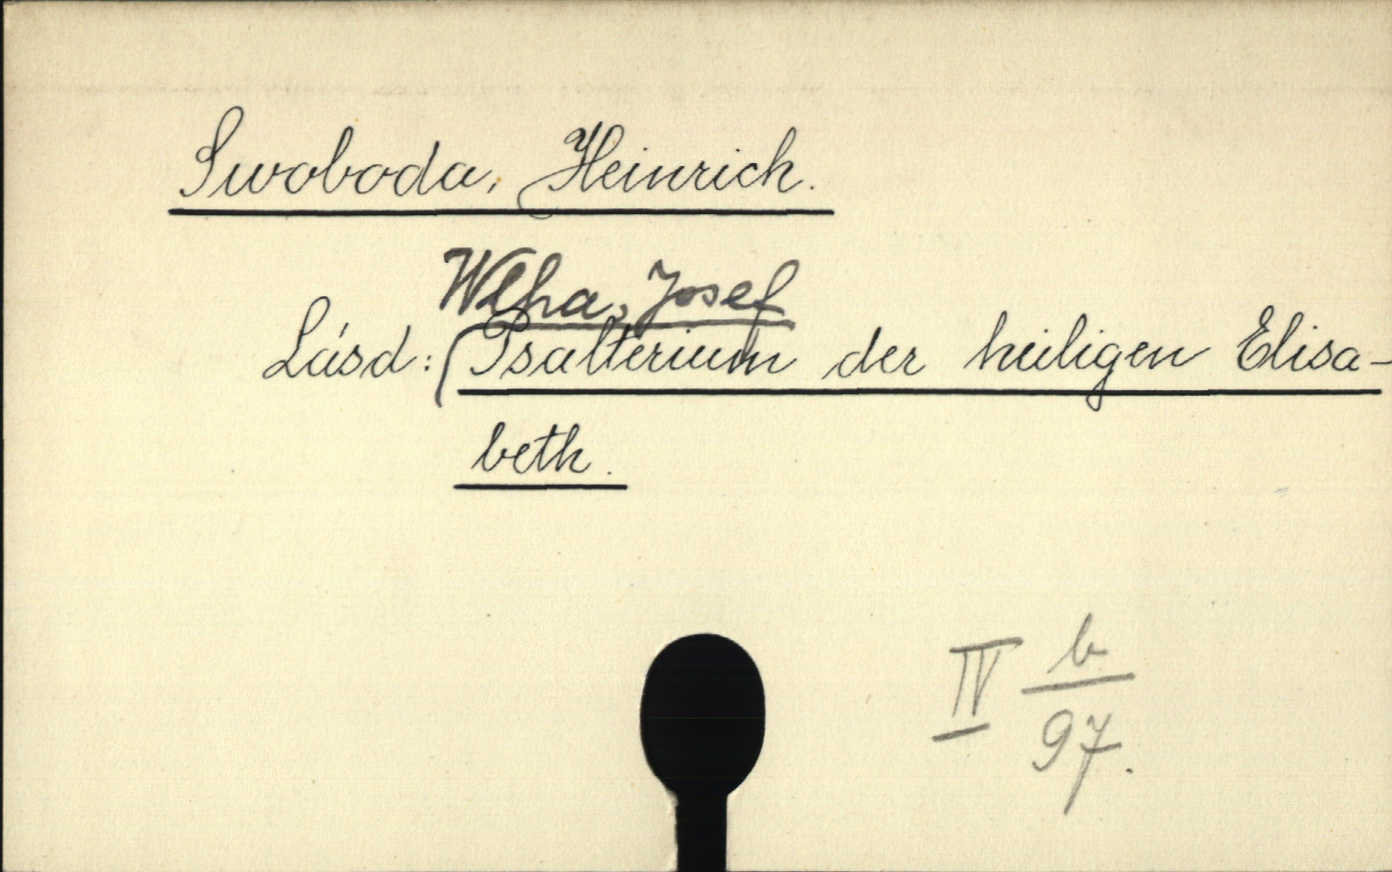 Swoboda, Heinrich.
Wlha, Josef
Lásd: (Psalterium der heiligen Elisa-
beth.
IV b/97.